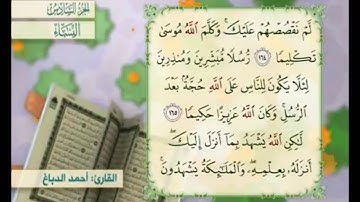 الجزء السادس
النساء
لَّمْ نَقْصُصْهُمْ عَلَيْكَ ۚ وَكَلَّمَ اللَّهُ مُوسَىٰ
تَكْلِيمًا ١٦٤ رُّسُلًا مُّبَشِّرِينَ وَمُنذِرِينَ
لِئَلَّا يَكُونَ لِلنَّاسِ عَلَى اللَّهِ حُجَّةٌ بَعْدَ
الرُّسُلِ ۚ وَكَانَ اللَّهُ عَزِيزًا حَكِيمًا ١٦٥
لَّٰكِنِ اللَّهُ يَشْهَدُ بِمَا أَنزَلَ إِلَيْكَ ۖ
أَنزَلَهُ بِعِلْمِهِ ۖ وَالْمَلَائِكَةُ يَشْهَدُونَ ۚ
القارئ: أحمد الدباغ